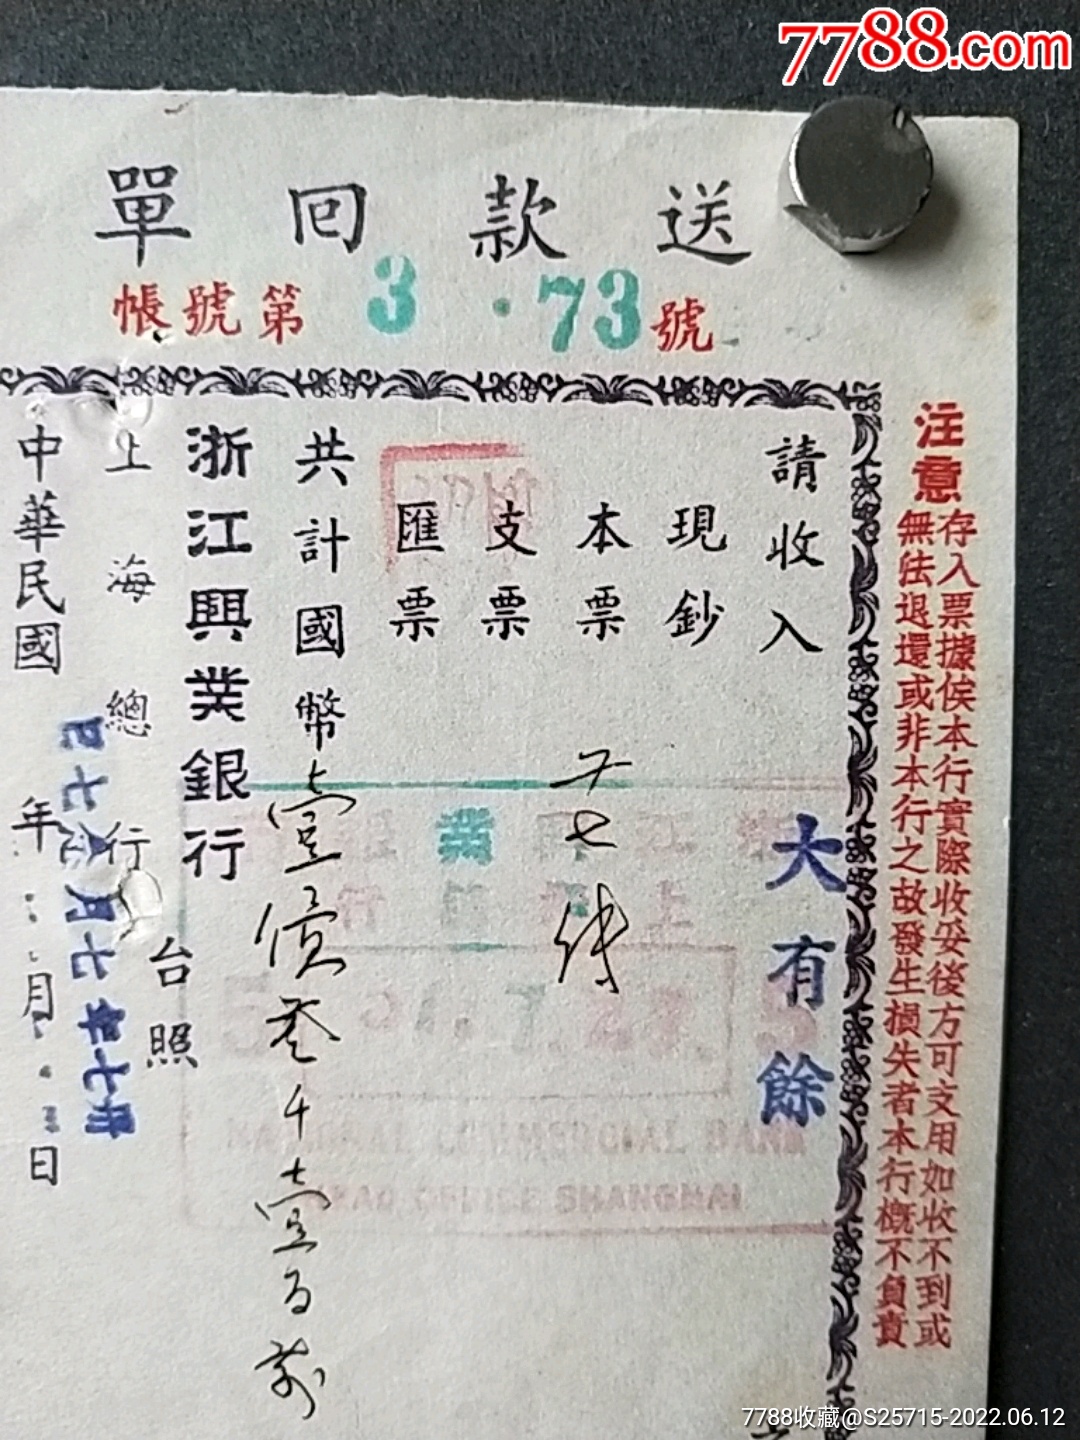 7788.com
送款回單
帳號第 3 73 號
注意
存入票據俟本行實際收妥後方可支用如收不到或
無法退還或非本行之故發生損失者本行概不負責
請收入
大有餘
現鈔
本票
支票
匯票
共計國幣壹億叁千壹百萬
浙江興業銀行
上海總行
台照
中華民國
年 月 日
HEAD OFFICE SHANGHAI
7788收藏@S25715-2022.06.12